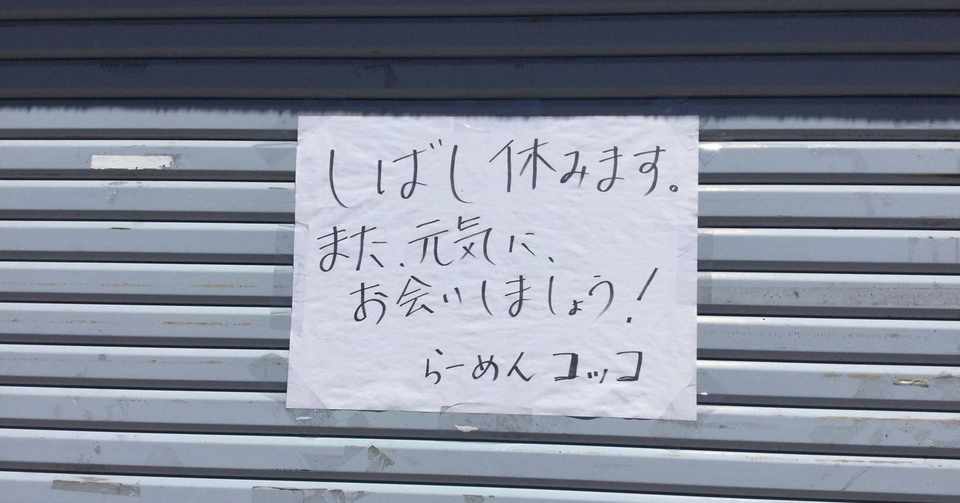 しばし休みます。
また、元気に、
お会いしましょう!
らーめん コッコ